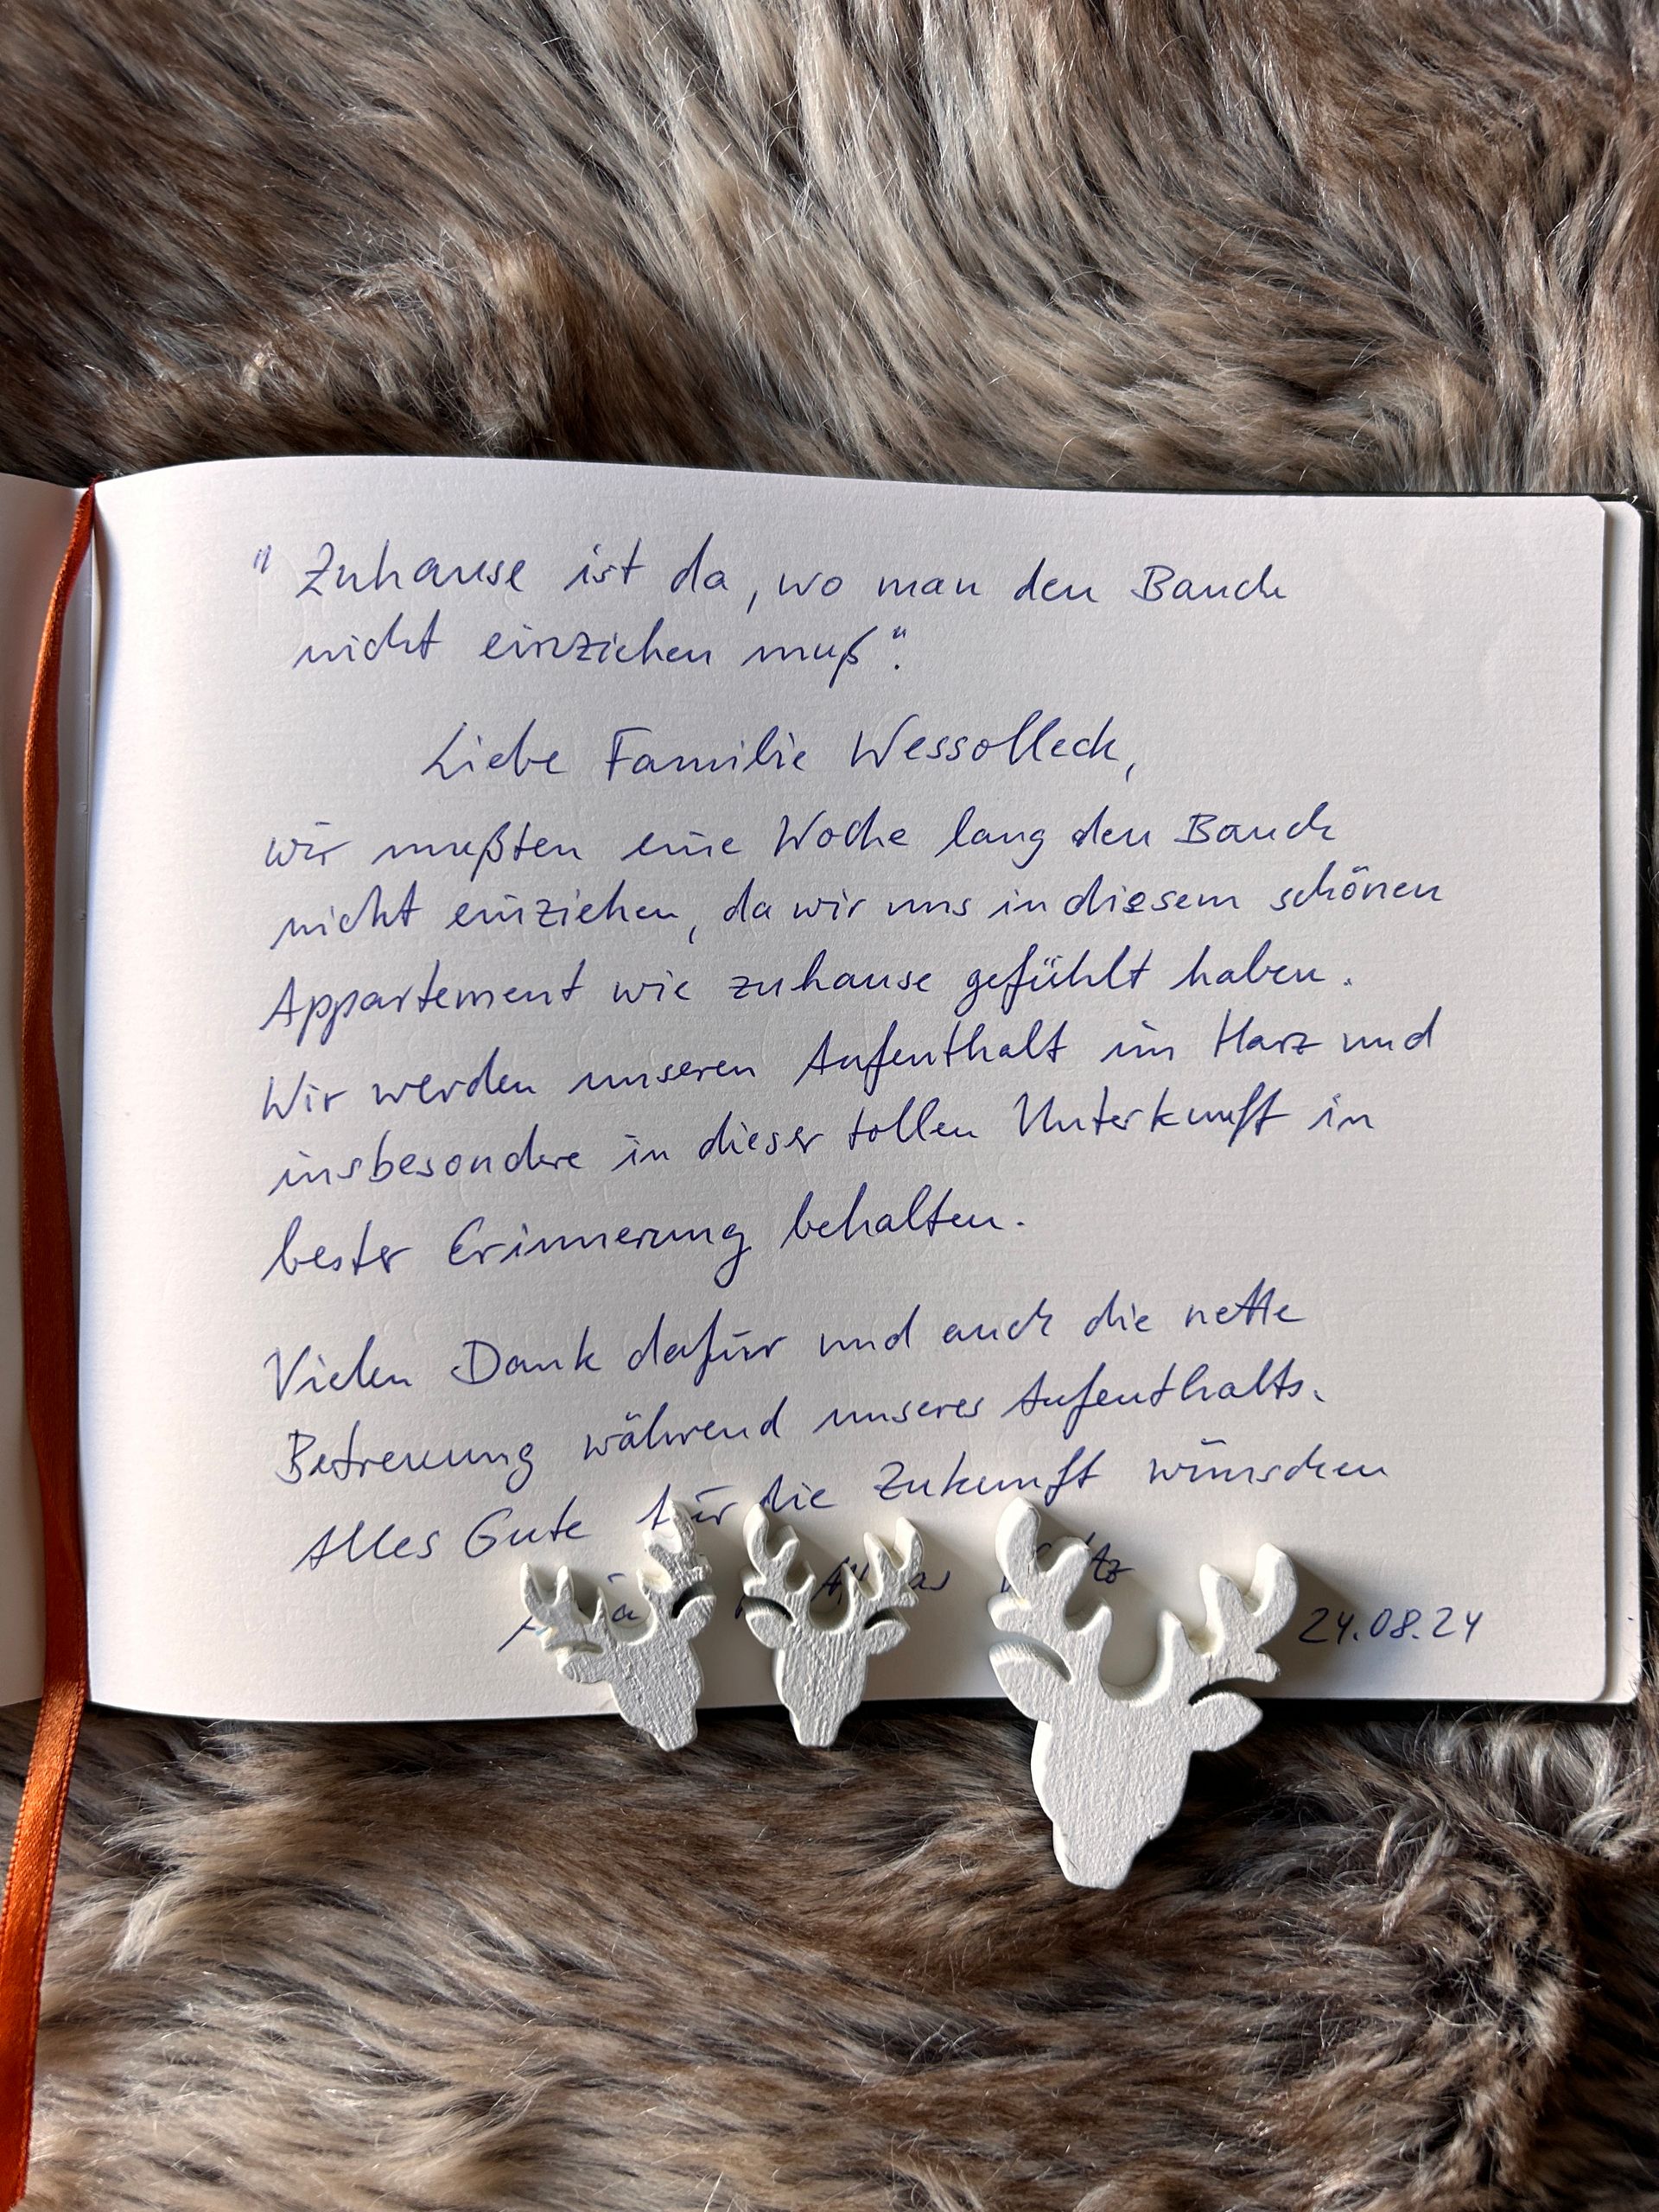 "Zuhause ist da, wo man den Bauch
nicht einziehen muß".
Liebe Familie Wessolleck,
wir mußten eine Woche lang den Bauch
nicht einziehen, da wir uns in diesem schönen
Appartement wie zuhause gefühlt haben.
Wir werden unseren Aufenthalt im Harz und
insbesondere in dieser tollen Unterkunft in
bester Erinnerung behalten.
Vielen Dank dafür und auch die nette
Betreuung während unseres Aufenthalts.
Alles Gute für die Zukunft wünschen
24.08.24